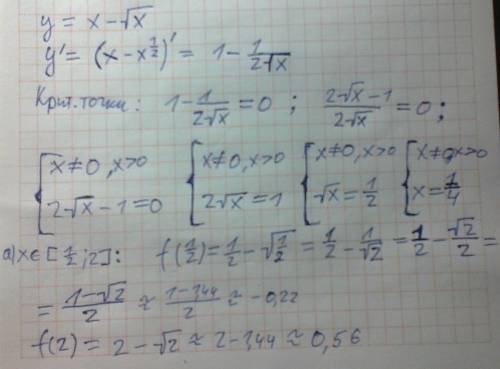 y = x - √x
y' = (x - x^(1/2))' = 1 - 1/(2√x)
Крит. точки: 1 - 1/(2√x) = 0 ; (2√x - 1)/(2√x) = 0 ;
{ x ≠ 0, x>0 { x ≠ 0, x>0 { x ≠ 0, x>0 { x ≠ 0, x>0
2√x - 1 = 0 2√x = 1 √x = 1/2 x = 1/4
а) x ∈ [1/2; 2]: f(1/2) = 1/2 - √(1/2) = 1/2 - 1/√2 = 1/2 - √2/2 =
= (1 - √2)/2 ≈ (1 - 1,44)/2 ≈ -0,22
f(2) = 2 - √2 ≈ 2 - 1,44 ≈ 0,56